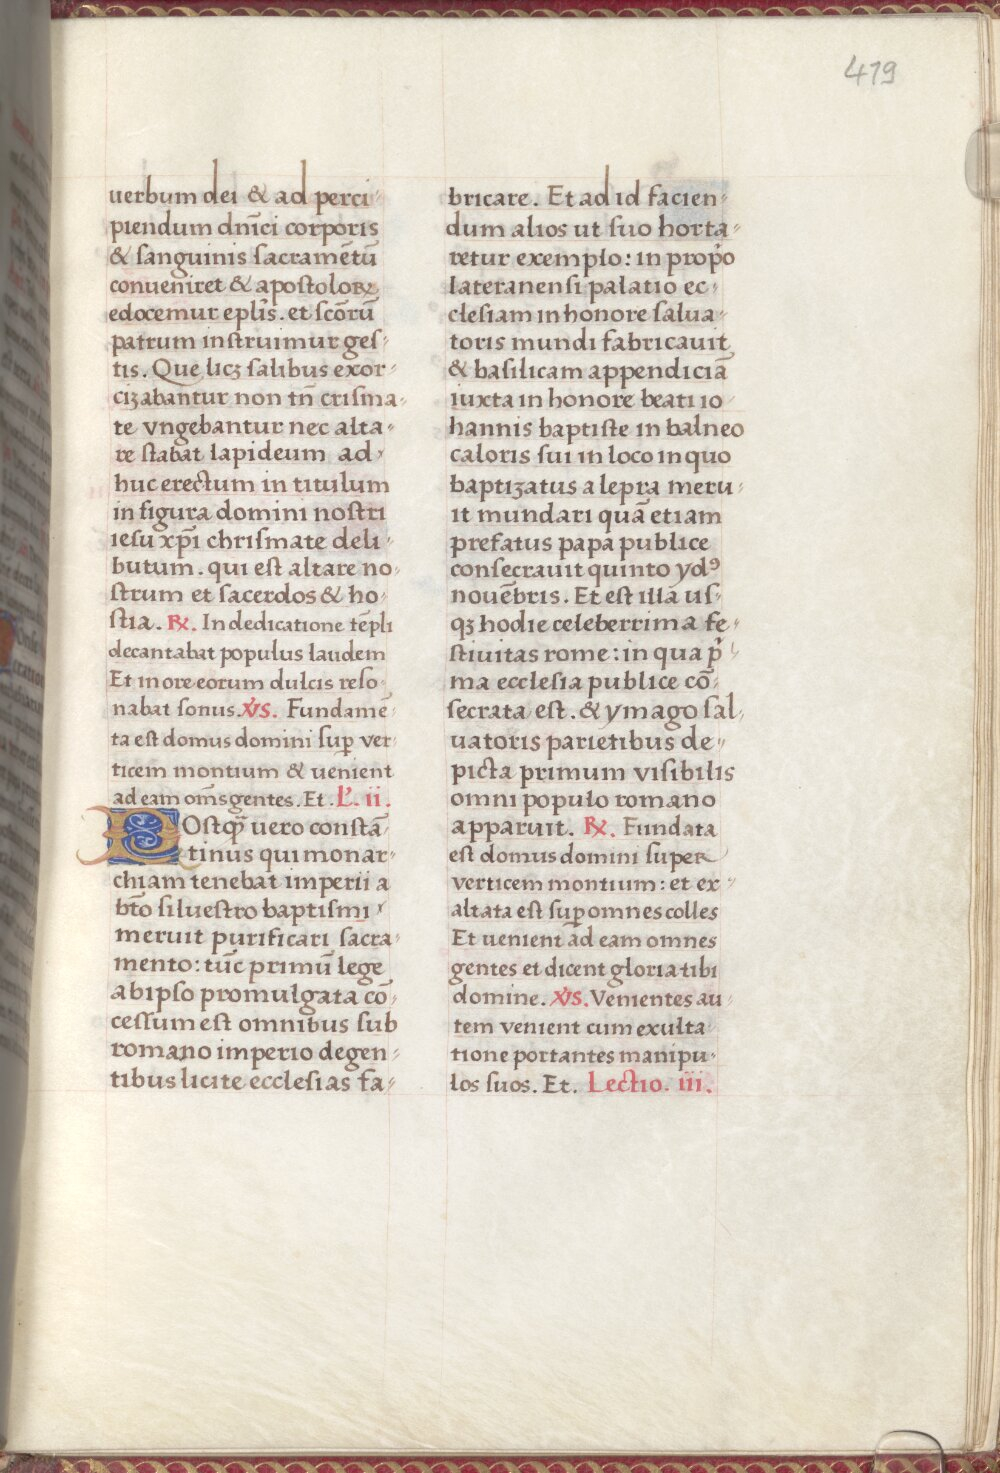 419
uerbum dei & ad perci-
piendum dñici corporis
& sanguinis sacramētū
conueniret & apostoloꝝ
edocemur eplis̄. et scōrū
patrum instruimur ges-
tis. Que licꝫ salibus exor-
cizabantur non tñ crisma-
te vngebantur nec alta-
re stabat lapideum ad-
huc erectum in titulum
in figura domini nostri
iesu xp̄i chrismate deli-
butum. qui est altare no-
strum et sacerdos & ho-
stia. ℟. In dedicatione tēpli
decantabat populus laudem
Et in ore eorum dulcis reso-
nabat sonus. ℣S. Fundamē-
ta est domus domini suꝑ ver-
ticem montium & uenient
ad eam oms̄ gentes. Et. L'. ii.
POstꝙ̄ uero constā-
tinus qui monar-
chiam tenebat imperii a
bt̄o siluestro baptismi
meruit purificari sacra-
mento: tūc primū lege
ab ipso promulgata cō-
cessum est omnibus sub
romano imperio degen-
tibus licite ecclesias fa-
bricare. Et ad id facien-
dum alios ut suo horta-
retur exemplo: in prop̄o
lateranensi palatio ec-
clesiam in honore salua-
toris mundi fabricauit
& basilicam appendiciā
iuxta in honore beati io-
hannis baptiste in balneo
caloris sui in loco in quo
baptizatus a lepra meru-
it mundari quā etiam
prefatus papa publice
consecrauit quinto ydꝰ
nouēbris. Et est illa us-
qꝫ hodie celeberrima fe-
stiuitas rome: in qua p̄-
ma ecclesia publice cō-
secrata est. & ymago sal-
uatoris parietibus de-
picta primum visibilis
omni populo romano
apparuit. ℟. Fundata
est domus domini super
verticem montium: et ex-
altata est suꝑ omnes colles
Et uenient ad eam omnes
gentes et dicent gloria tibi
domine. ℣S. Venientes au-
tem venient cum exulta-
tione portantes manipu-
los suos. Et. Lectio. iii.